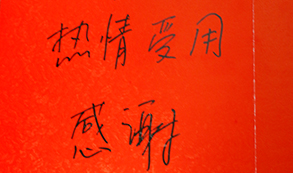 热情受用
感谢